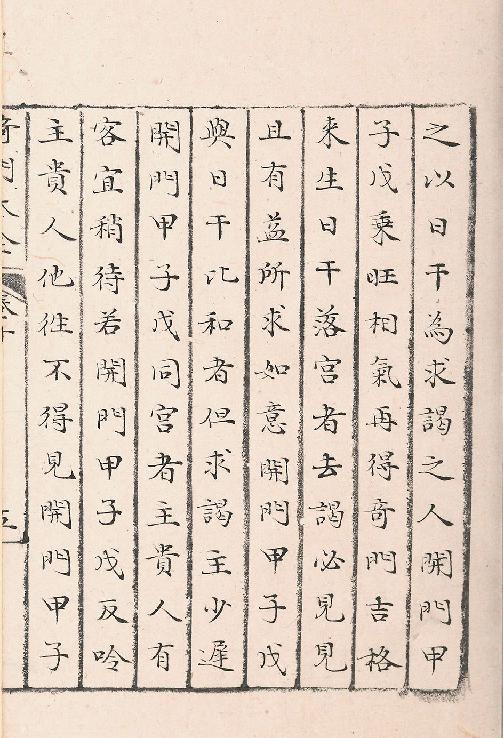 之以日干為求謁之人開門甲
子戊乘旺相氣再得奇門吉格
来生日干落宮者去謁必見見
且有益所求如意開門甲子戊
與日干比和者但求謁主少遲
開門甲子戊同宮者主貴人有
客宜稍待若開門甲子戊反吟
主貴人他徃不得見開門甲子